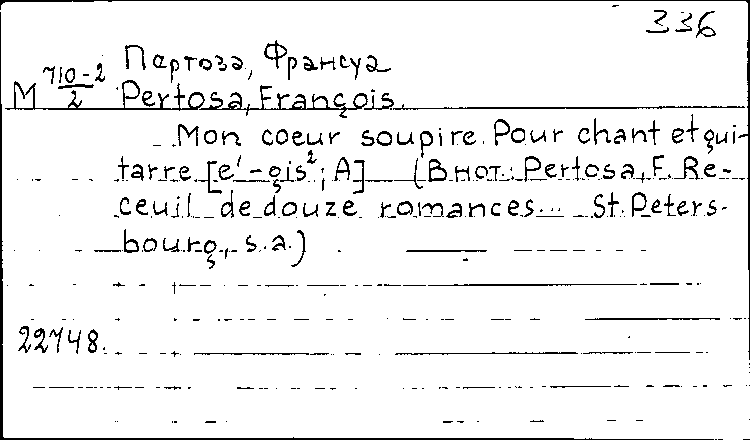 336
Партоза, Франсуа
М 710-2/2 Pertosa, François.
Mon coeur soupire. Pour chant et gui-
tarre [e'-gis²; A] (В нот.: Pertosa, F. Re-
ceuil de douze romances... St. Peters-
bourg, s.a.)
22748.